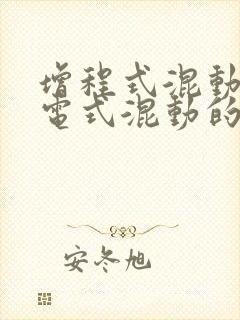 增程式混動
電式混動的
安冬旭